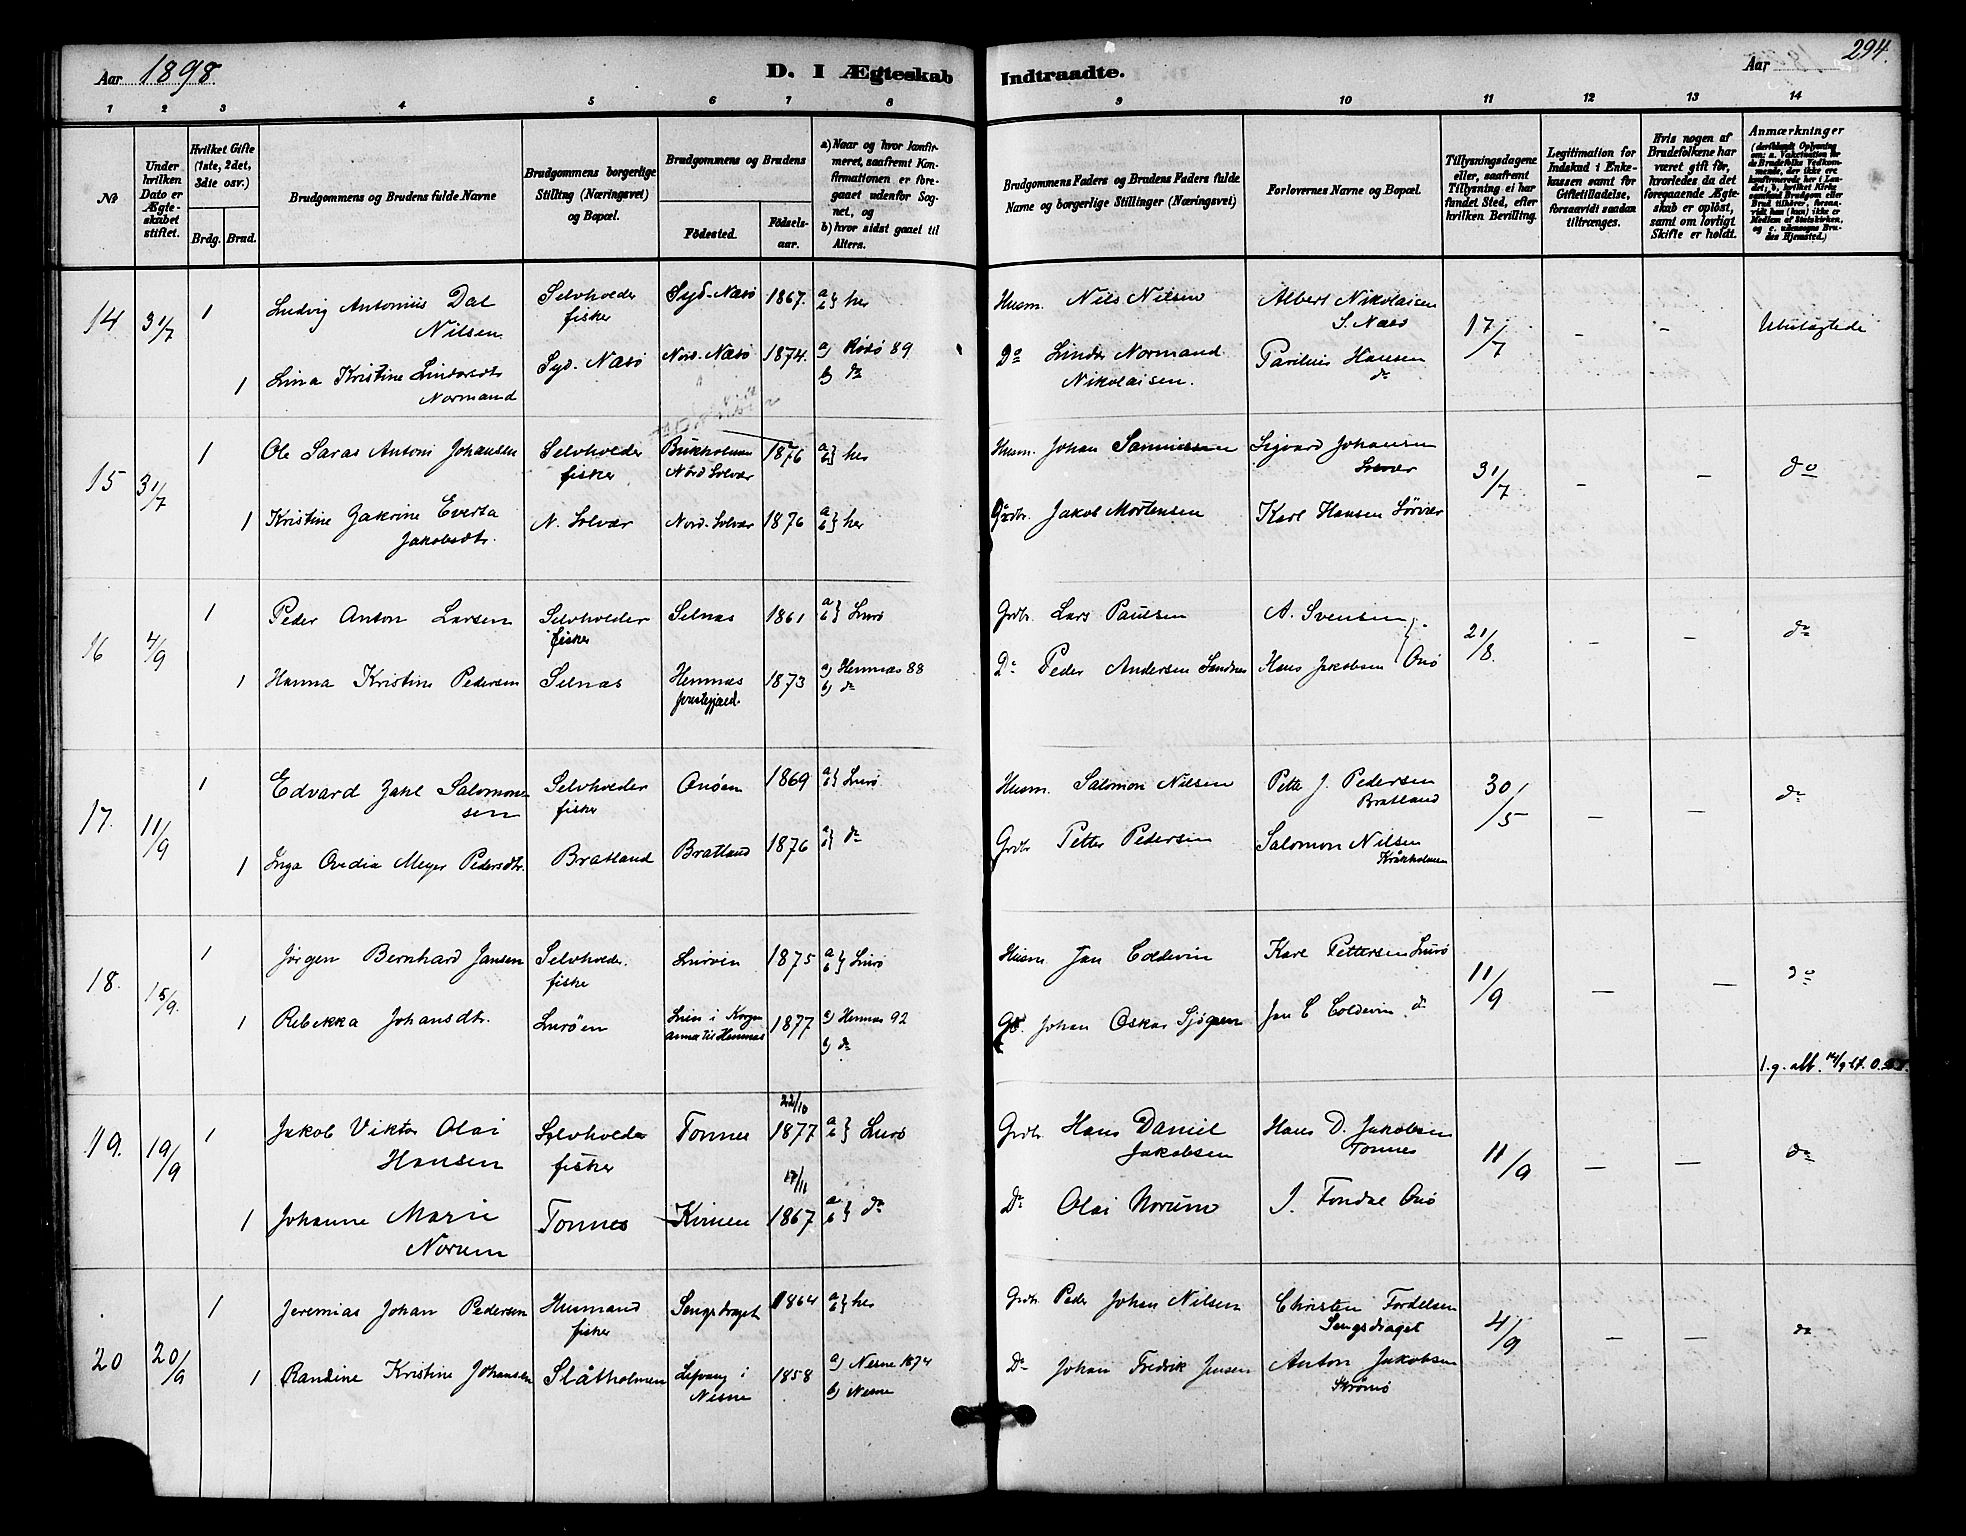 Aar 1898.
D. I Ægteskab Indtraadte.
Aar
294.
1 2 3 4 5 6 7 8 9 10 11 12 13 14
No
Under hvilken Dato er Ægteskabet stiftet.
Hvilket Gifte (1ste, 2det, 3die osv.)
Brdg. Brud.
Brudgommens og Brudens fulde Navne
Brudgommens borgerlige Stilling (Næringsvei) og Bopæl.
Brudgommens og Brudens
Födested.
Födselsaar.
a) Naar og hvor konfirmeret, saafremt Konfirmationen er foregaaet udenfor Sognet, og
b) hvor sidst gaaet til Alters.
Brudgommens Faders og Brudens Faders fulde Navne og borgerlige Stillinger (Næringsvei)
Forlovernes Navne og Bopæl.
Tillysningsdagene eller, saafremt Tillysning ei har fundet Sted, efter hvilken Bevilling.
Legitimation for Indskud i Enkekassen samt for Giftetilladelse, forsaavidt saadan tiltrænges.
Hvis nogen af Brudefolkene har været gift för, hvorledes da det foregaaende Ægteskab er oplöst, samt om lovligt Skifte er holdt.
Anmærkninger
14 31/7 1 Ludvig Antonius Dal Nilsen Selvhveder fisker Syd-Næsö 1867. a b} her Husm. Nils Nilsen Albert Nikolaisen S. Næsö 17/7 – – Ubeslægtede
1 Lina Kristine Normand Syd. Næsö Nord. Næsö 1874. a) Rösö 89 b) do Do Linder Normand Nikolaisen. Parelius Hansen do
15 31/7 1 Ole Saras Antoni Johansen Selvhveder fisker Nord Solvær 1876 a b} her Husm. Johan Sigvard Johansen Solvær 31/7 – – do
1 Kristine Jakrine Everta Jakobsdtr. N. Solvær Nord. Solvær 1876 a b} her Grdbr. Jakob Mortensen Karl Hansen Sörvær
16 4/9 1 Peder Anton Larsen Selvhveder fisker Selnæs 1861 a b} Lurö Grdbr. Lars Paulsen A. Svensen 21/8. – – do
1 Hanna Kristine Pedersen Selnæs Hemnæs 1873 a) Hemnæs 88 b) do Do Peder Andersen Sandnes Hans Jakobsen Onö
17. 11/9 1 Edvard Zahl Salomonsen Selvhveder fisker Onöen 1869 a b} Lurö Husm. Salomon Nilsen Petter J. Pedersen Bratland 30/5 – – do
1 Inga Ovedia Meyer Pedersdtr. Bratland Bratland 1876 a b} do Grdbr Petter Pedersen Salomon Nilsen Kråkholmen
18. 15/9. 1 Jörgen Bernhard Jansen Selvhveder. fisker Luröen 1875 a b} Lurö Husm Jan Coldevin Karl Pettersen Lurö 11/9 – – do
1 Rebekka Johansdtr. Luröen i Korgen annex til Hemnæs 1877 a) Hemnæs 92 b) do Johan Oskar Sjögren Jan C Coldevin do
19. 19/9 1 Jakob Viktor Olai Hansen Selvhveder fisker Tonnes 22/10 1877 a b} Lurö Grdbr. Hans Daniel Jakobsen Hans D. Jakobsen Tonnes 11/9 – – do
1 Johanne Marie Norum Tonnes Kinnen 17/11 1867 a b} do Do Olai Norum J. Fondal Onö
20 20/9 1 Jeremias Johan Pedersen Husmand fisker Sengsdraget 1864 a b} her Grdbr Peder Johan Nilsen Christen Tordelsen Sengsdraget 4/9 – – do
1 Randine Kristine Johansen Slåtholmen i Nesne 1858 a) Nesne 1874 b) Nesne Do Johan Fredrik Jensen Anton Jakobsen